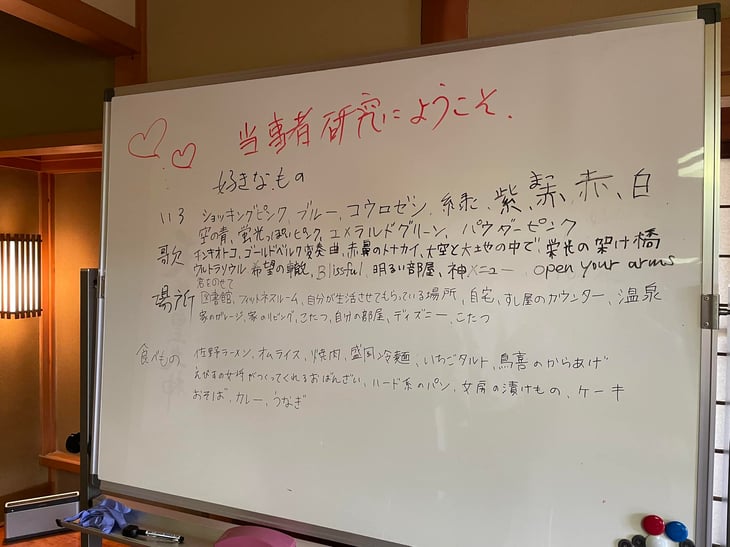 当事者研究にようこそ.
好きなもの
いろ ショッキングピンク、ブルー、コウロゼン、緑、紫、まっ赤、赤、白
空の青、蛍光っぽいピンク、エメラルドグリーン、パウダーピンク
歌 ギンギオトコ、ゴールドベルク変奏曲、赤鼻のトナカイ、大空と大地の中で、栄光の架け橋
ウルトラソウル 希望の轍、Blissful、明るい部屋、神メニュー open your arms
君をのせて
場所 図書館、フィットネスルーム、自分が生活させてもらっている場所、自宅、すし屋のカウンター、温泉
家のガレージ、家のリビング、こたつ、自分の部屋、ディズニー、こたつ
食べもの 佐野ラーメン、オムライス、焼肉、盛岡冷麺、いちごタルト、鳥喜のからあげ
えびすの女将がつくってくれるおばんざい、ハード系のパン、女房の漬けもの、ケーキ
おそば、カレー、うなぎ